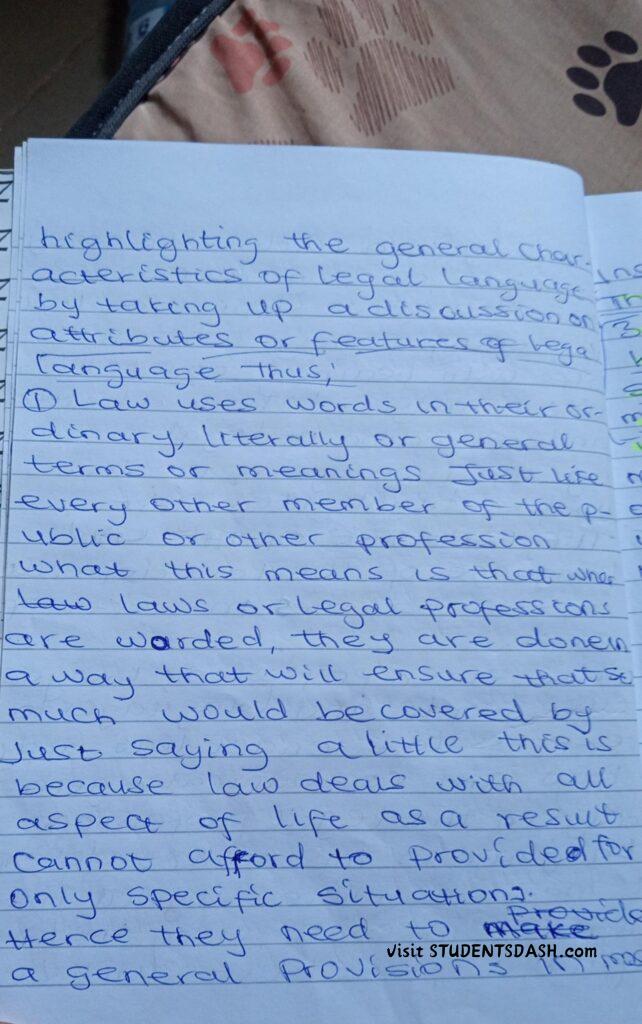 highlighting the general char-
acteristics of legal language
by taking up a discussion on
attributes or features of lega
language thus;
① Law uses words in their or-
dinary, literally or general
terms or meanings Just like
every other member of the p-
ublic or other profession
what this means is that when
law laws or legal professions
are worded, they are done in
a way that will ensure that so
much would be covered by
Just saying a little this is
because law deals with all
aspect of life as a result
cannot afford to provided for
only specific situations.
Hence they need to make provide
a general provisions in
visit STUDENTSDASH.com